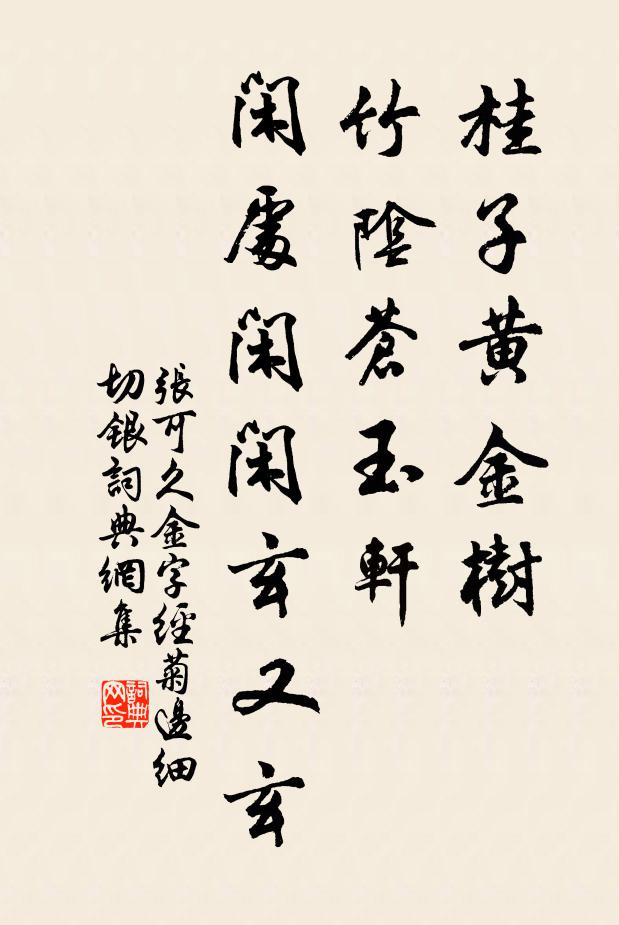 桂子黄金樹
竹陰蒼玉軒
閑處閑閑玄又玄
張可久金字經菊邊細
切銀詞典網集
詞典
网印